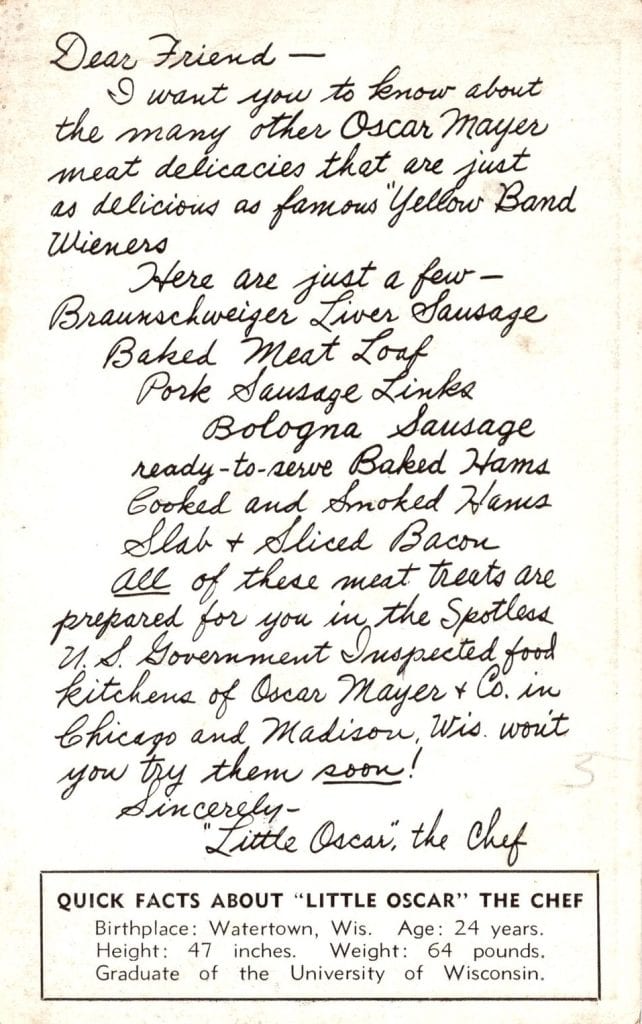 Dear Friend —
I want you to know about
the many other Oscar Mayer
meat delicacies that are just
as delicious as famous "Yellow Band
Wieners
Here are just a few —
Braunschweiger Liver Sausage
Baked Meat Loaf
Pork Sausage Links
Bologna Sausage
ready-to-serve Baked Hams
Cooked and Smoked Hams
Slab + Sliced Bacon
All of these meat treats are
prepared for you in the Spotless
U.S. Government Inspected food
kitchens of Oscar Mayer + Co. in
Chicago and Madison, Wis. won't
you try them soon!
5
Sincerely—
"Little Oscar", the Chef
QUICK FACTS ABOUT "LITTLE OSCAR" THE CHEF
Birthplace: Watertown, Wis. Age: 24 years.
Height: 47 inches. Weight: 64 pounds.
Graduate of the University of Wisconsin.